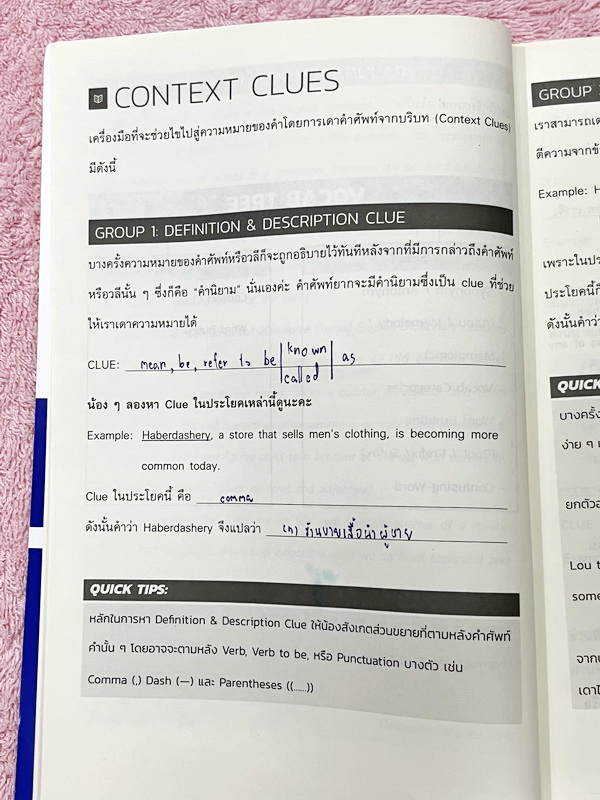 CONTEXT CLUES
เครื่องมือที่จะช่วยไขไปสู่ความหมายของคำโดยการเดาคำศัพท์จากบริบท (Context Clues)
มีดังนี้
GROUP 1: DEFINITION & DESCRIPTION CLUE
บางครั้งความหมายของคำศัพท์หรือวลีก็จะถูกอธิบายไว้ทันทีหลังจากที่มีการกล่าวถึงคำศัพท์
หรือวลีนั้น ๆ ซึ่งก็คือ "คำนิยาม" นั่นเองค่ะ คำศัพท์ยากจะมีคำนิยามซึ่งเป็น clue ที่ช่วย
ให้เราเดาความหมายได้
CLUE: mean, be, refer to be | known | as
called
น้อง ๆ ลองหา Clue ในประโยคเหล่านี้ดูนะคะ
Example: Haberdashery, a store that sells men's clothing, is becoming more
common today.
Clue ในประโยคนี้ คือ comma
ดังนั้นคำว่า Haberdashery จึงแปลว่า (n) ร้านขายเสื้อผ้าผู้ชาย
QUICK TIPS:
หลักในการหา Definition & Description Clue ให้น้องสังเกตส่วนขยายที่ตามหลังคำศัพท์
คำนั้น ๆ โดยอาจจะตามหลัง Verb, Verb to be, หรือ Punctuation บางตัว เช่น
Comma (,) Dash (—) และ Parentheses ((......))
GROUP
เราสามารถเด
ตีความจากข้
Example: H
เพราะในประ
ประโยคนี้ก็
ดังนั้นคำว่า
QUICK
บางครั้ง
ง่าย ๆ เ
ยกตัวอ
Lou t
some
จาก
เดาไ